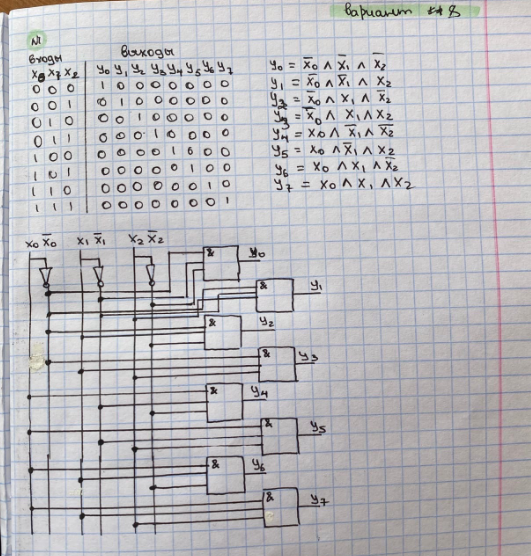 вариант № 8
№1
входы выходы
x₀ x₁ x₂ y₀ y₁ y₂ y₃ y₄ y₅ y₆ y₇
0 0 0 1 0 0 0 0 0 0 0
0 0 1 0 1 0 0 0 0 0 0
0 1 0 0 0 1 0 0 0 0 0
0 1 1 0 0 0 1 0 0 0 0
1 0 0 0 0 0 0 1 0 0 0
1 0 1 0 0 0 0 0 1 0 0
1 1 0 0 0 0 0 0 0 1 0
1 1 1 0 0 0 0 0 0 0 1
y₀ = x̅₀ ∧ x̅₁ ∧ x̅₂
y₁ = x̅₀ ∧ x̅₁ ∧ x₂
y₂ = x̅₀ ∧ x₁ ∧ x̅₂
y₃ = x̅₀ ∧ x₁ ∧ x₂
y₄ = x₀ ∧ x̅₁ ∧ x̅₂
y₅ = x₀ ∧ x̅₁ ∧ x₂
y₆ = x₀ ∧ x₁ ∧ x̅₂
y₇ = x₀ ∧ x₁ ∧ x₂
x₀ x̅₀ x₁ x̅₁ x₂ x̅₂
& y₀
& y₁
& y₂
& y₃
& y₄
& y₅
& y₆
& y₇